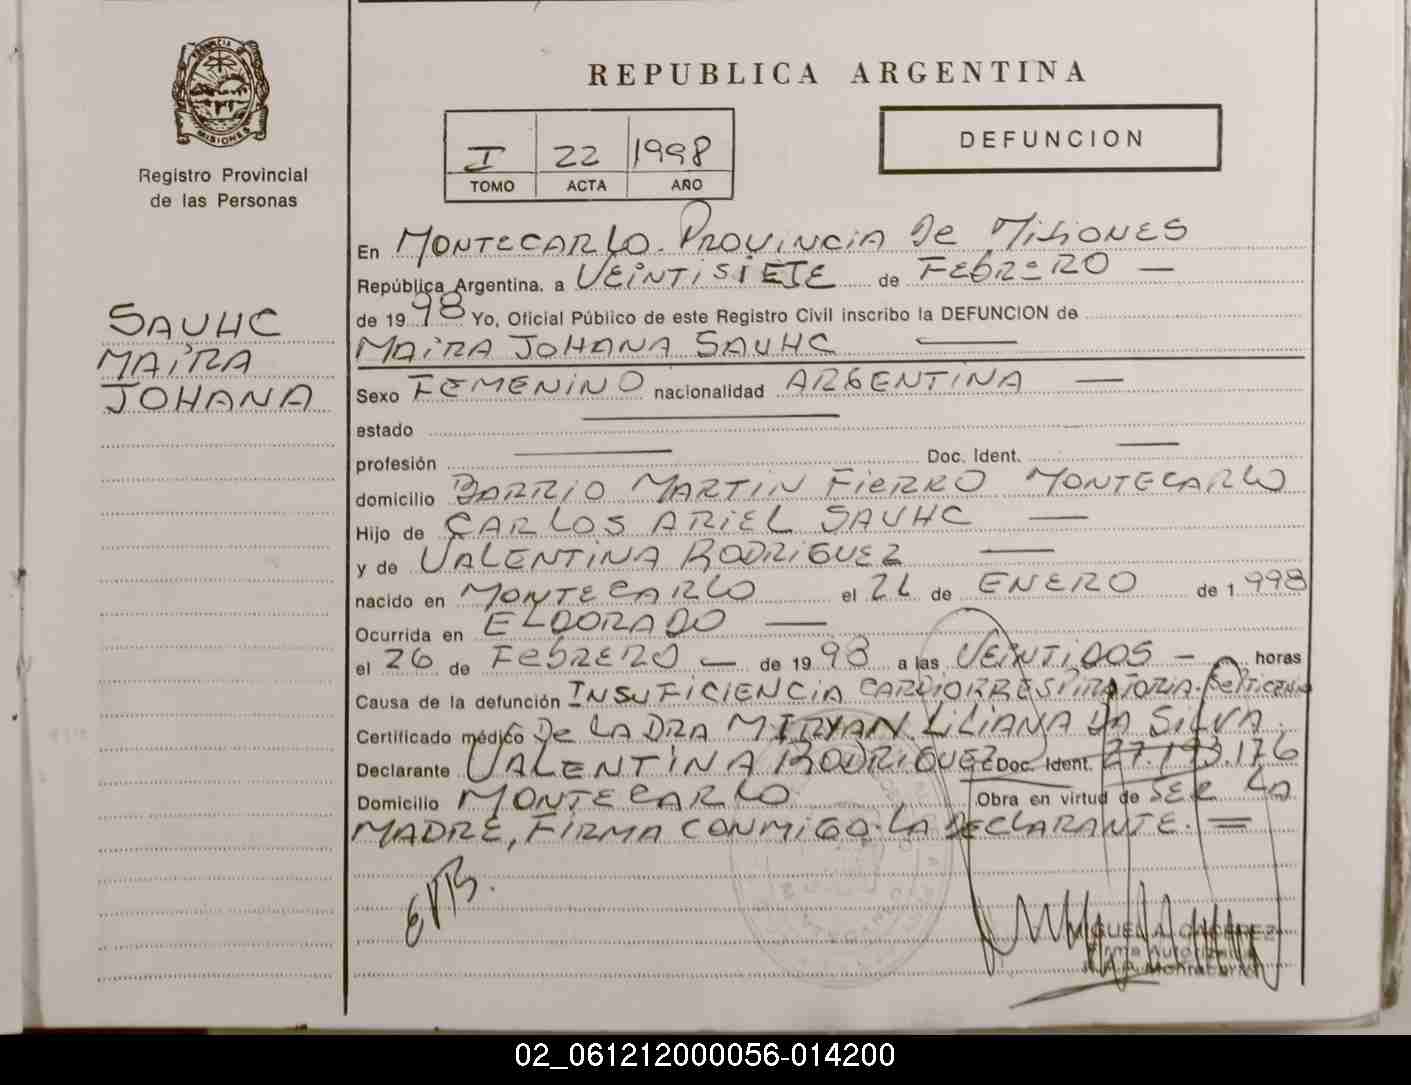 PROVINCIA DE
MISIONES
Registro Provincial
de las Personas
SAUHC
MAIRA
JOHANA
REPUBLICA ARGENTINA
I 22 1998
TOMO ACTA AÑO
DEFUNCION
En MONTECARLO. PROVINCIA De MISIONES
República Argentina, a VEINTISIETE de FEBRERO —
de 19 98 Yo, Oficial Público de este Registro Civil inscribo la DEFUNCION de
MAIRA JOHANA SAUHC —
Sexo FEMENINO nacionalidad ARGENTINA —
estado —
profesión — Doc. Ident. —
domicilio BARRIO MARTIN FIERRO MONTECARLO
Hijo de CARLOS ARIEL SAUHC —
y de VALENTINA RODRIGUEZ —
nacido en MONTECARLO el de ENERO de 1 998
Ocurrida en ELDORADO —
el 26 de FEBRERO — de 19 98 a las VEINTIDOS — horas
Causa de la defunción INSUFICIENCIA CARDIORRESPIRATORIA.
Certificado médico De LA DRA MIRYAN LILIANA DA SILVA.
Declarante VALENTINA RODRIGUEZ Doc. Ident. 27.193.176
Domicilio MONTECARLO Obra en virtud de SER LA
MADRE, FIRMA CONMIGO LA DECLARANTE. —
02_061212000056-014200